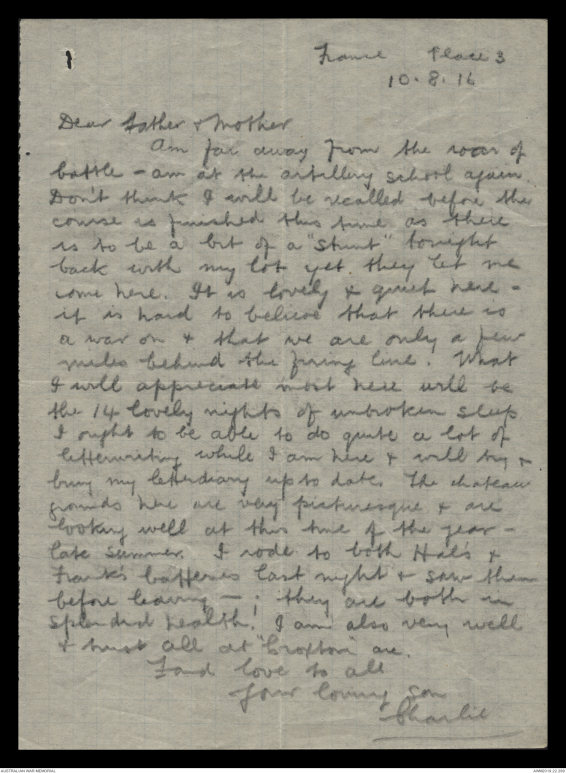 1
France Place 3
10.8.16
Dear Father & Mother
Am far away from the roar of
battle - am at the artillery school again.
Don't think I will be recalled before the
course is finished this time as there
is to be a bit of a "stunt" tonight
back with my lot yet they let me
come here. It is lovely & quiet here -
it is hard to believe that there is
a war on & that we are only a few
miles behind the firing line. What
I will appreciate most here will be
the 14 lovely nights of unbroken sleep
I ought to be able to do quite a lot of
letterwriting while I am here & will try &
bring my letterdiary up to date. The chateau
grounds here are very picturesque & are
looking well at this time of the year -
late summer. I rode to both Hal's &
Frank's batteries last night & saw them
before leaving - ; they are both in
splendid health! I am also very well
& trust all at "Croxton" are.
Fond love to all
Your loving son
Charlie
AUSTRALIAN WAR MEMORIAL